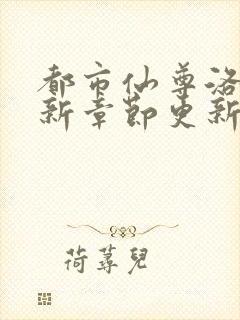 都市仙尊洛
新章節更新
荷蕁兒